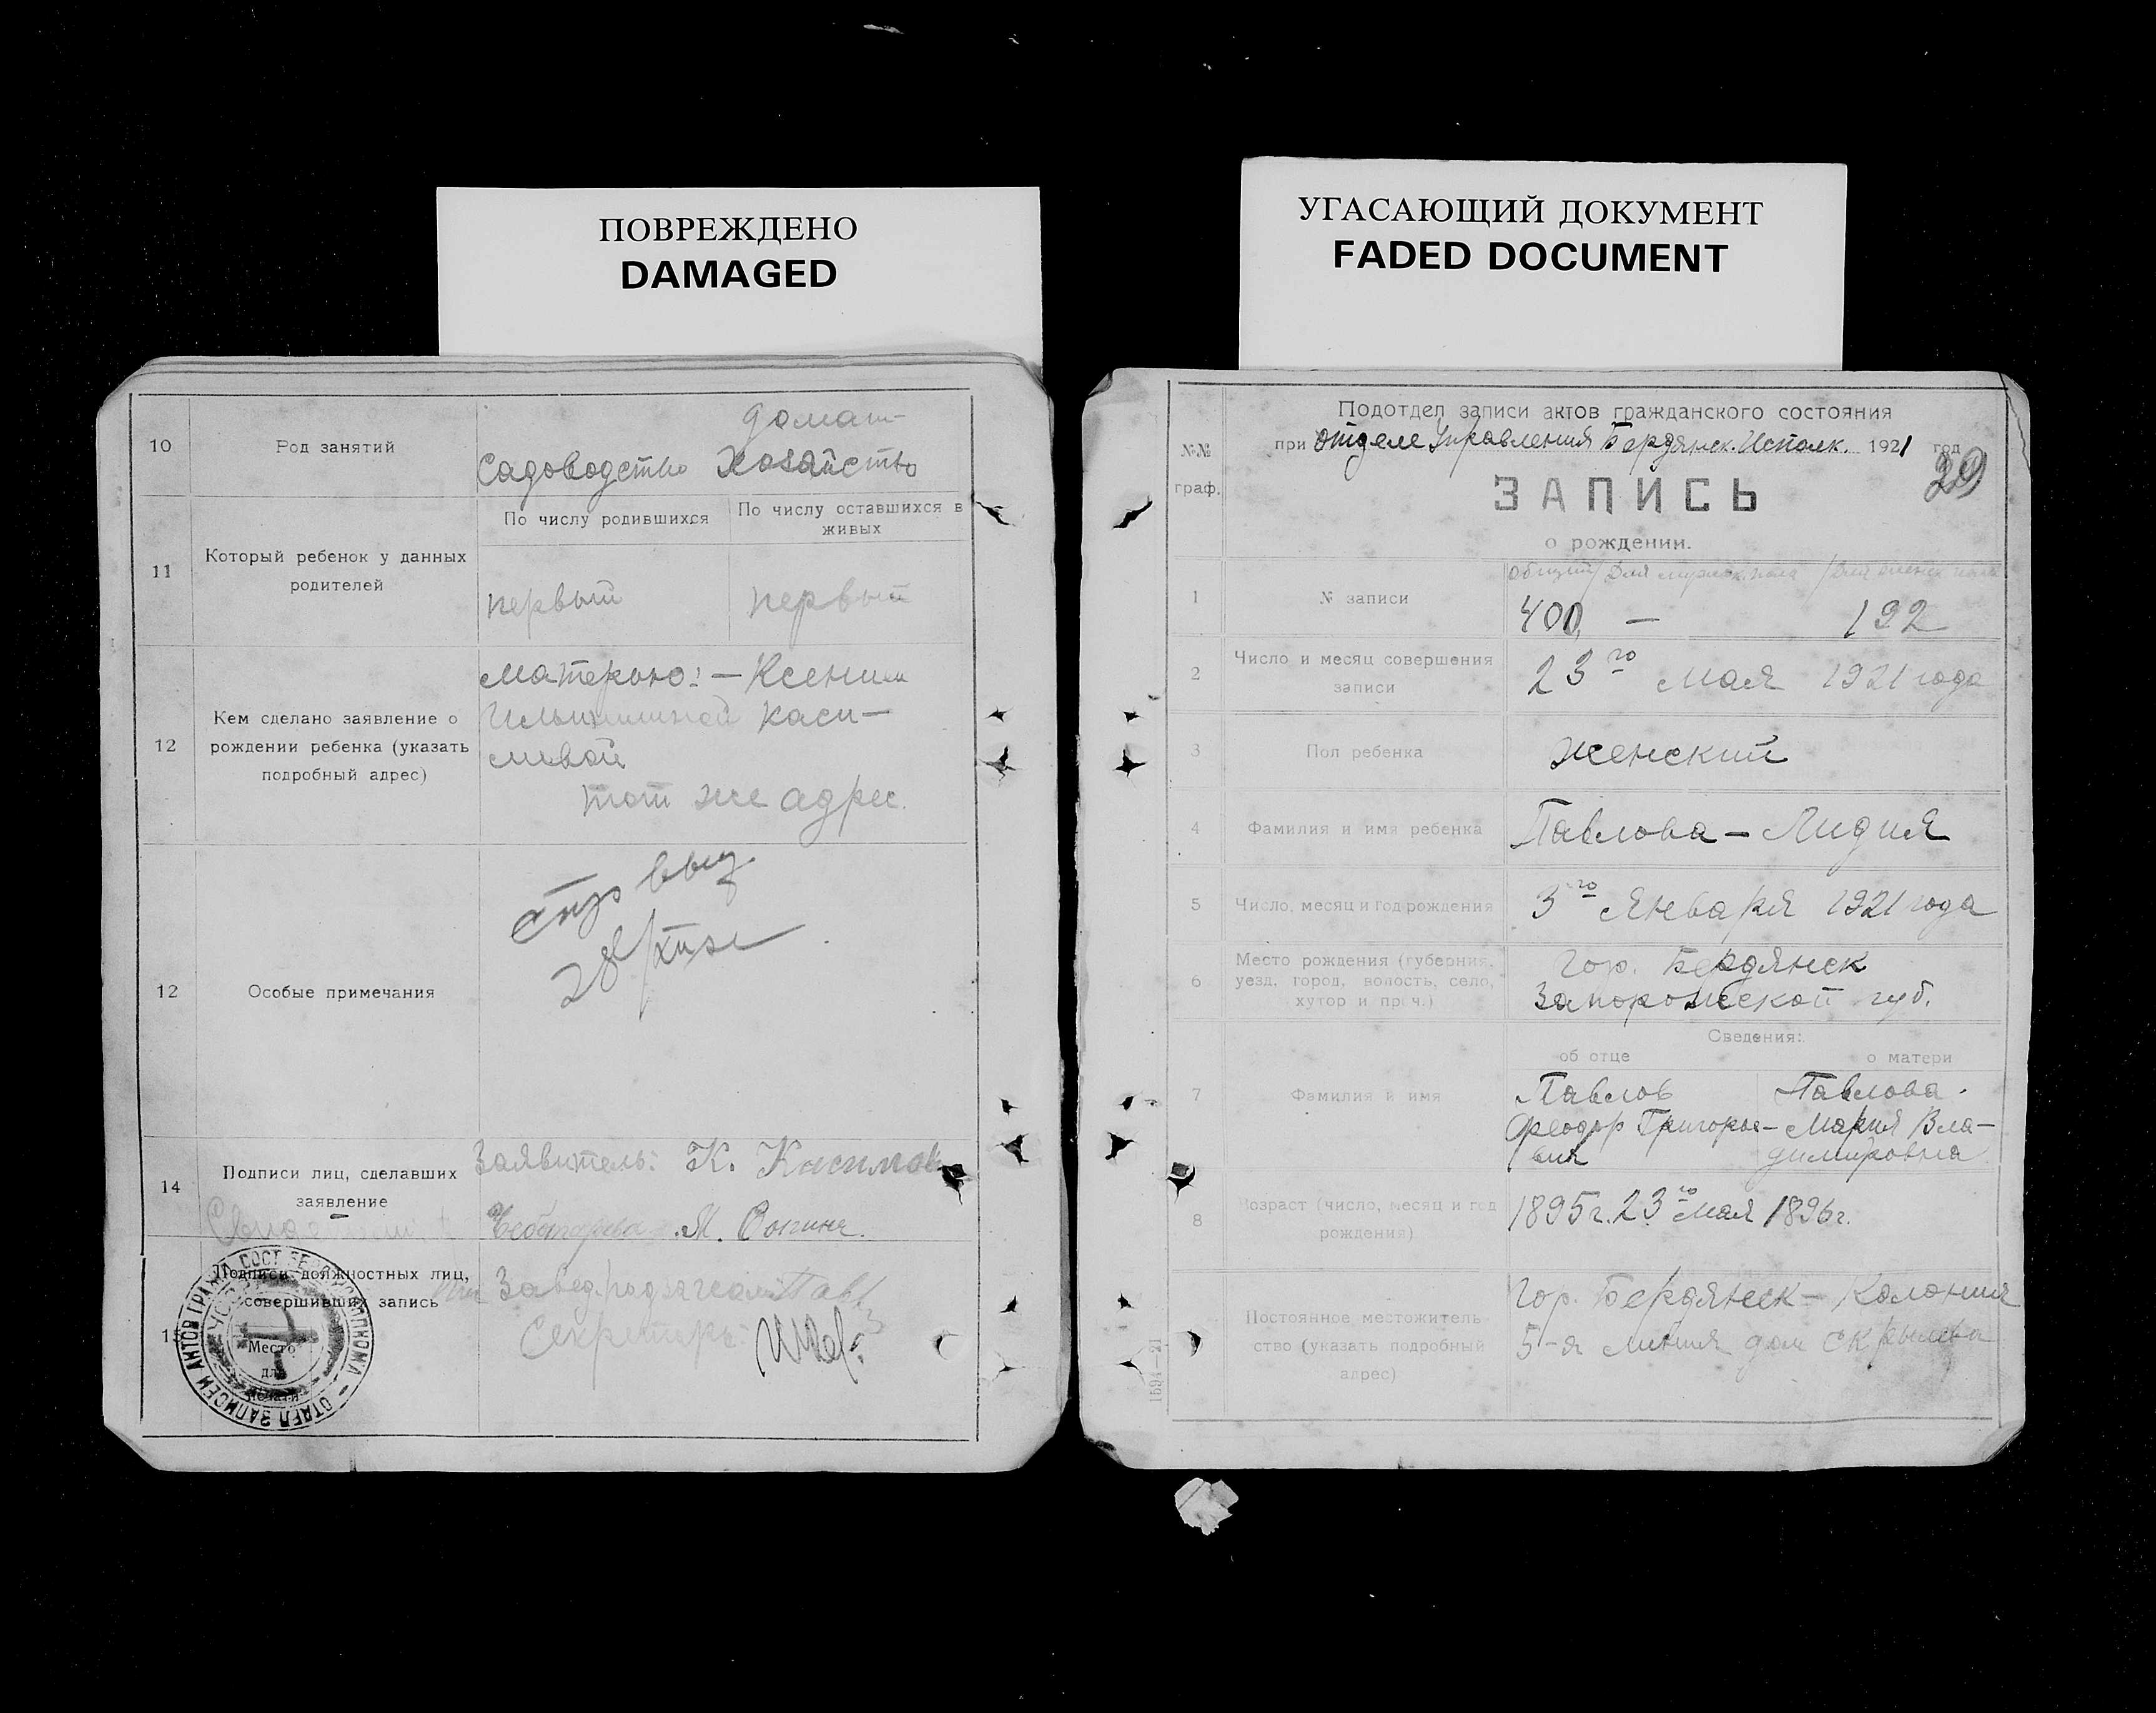 ПОВРЕЖДЕНО
DAMAGED
10
Род занятий
домаш-
Садоводство хозяйство
11
Который ребенок у данных
родителей
По числу родившихся
По числу оставшихся в
живых
первый
первый
12
Кем сделано заявление о
рождении ребенка (указать
подробный адрес)
Матерью: — Ксенией
Ильиничной Каси-
мовой
тот же адрес.
12
Особые примечания
14
Подписи лиц, сделавших
заявление
Заявитель: К. Касимов
М.
15
Подписи должностных лиц,
совершивших запись
Место
для
печати
Завед. подотделом
Секретарь:
УГАСАЮЩИЙ ДОКУМЕНТ
FADED DOCUMENT
№№
граф.
Подотдел записи актов гражданского состояния
при Отделе Управления Бердянск. Исполк. 1921 год
29
ЗАПИСЬ
о рождении.
1
№ записи
общий / для мужск. пола / для женск. пола
400, — 192
2
Число и месяц совершения
записи
23го Мая 1921 года
3
Пол ребенка
Женский
4
Фамилия и имя ребенка
Павлова — Лидия
5
Число, месяц и год рождения
3го Января 1921 года
6
Место рождения (губерния,
уезд, город, волость, село,
хутор и проч.)
Гор. Бердянск
Запорожской губ.
Сведения:
об отце
о матери
7
Фамилия и имя
Павлов
Феодор Григорье-
вич
Павлова
Мария Вла-
димировна
8
Возраст (число, месяц и год
рождения)
1895г. 23го Мая 1896г.
9
Постоянное местожитель-
ство (указать подробный
адрес)
Гор. Бердянск — Колония
5-я линия дом Скрылева
1594—21